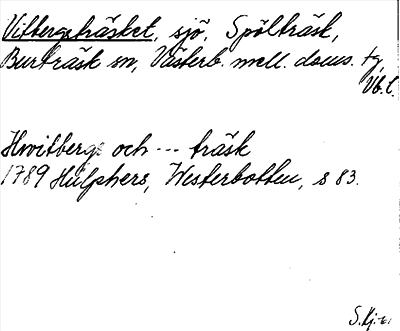 Vitbergsträsket, sjö, Spölträsk,
Burträsk sn, Västerb. mell. doms. tg,
Vb. l.
Hvitbergs och --- träsk
1789 Hülphers, Westerbotten, s 83.
S. Kj.